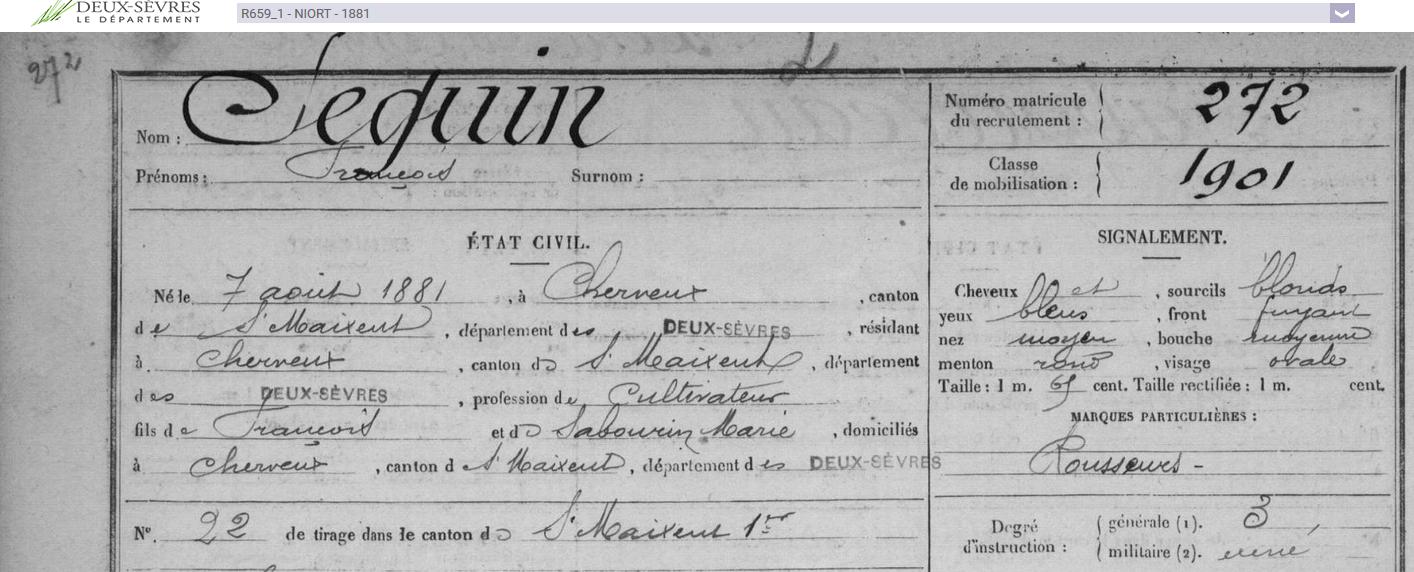 DEUX-SÈVRES
LE DÉPARTEMENT
R659_1 - NIORT - 1881
272
Nom : Seguin
Prénoms : François Surnom :
Numéro matricule du recrutement : 272
Classe de mobilisation : 1901
ÉTAT CIVIL.
Né le 7 août 1881, à Cherveux, canton
de St Maixent, département des DEUX-SÈVRES, résidant
à Cherveux, canton de St Maixent, département
des DEUX-SÈVRES, profession de Cultivateur
fils de François et de Sabourin Marie, domiciliés
à Cherveux, canton de St Maixent, département des DEUX-SÈVRES
N° 22 de tirage dans le canton de St Maixent 1er
SIGNALEMENT.
Cheveux et, sourcils blonds
yeux bleus, front fuyant
nez moyen, bouche moyenne
menton rond, visage ovale
Taille : 1 m. 65 cent. Taille rectifiée : 1 m. cent.
MARQUES PARTICULIÈRES :
Rousseurs -
Degré d'instruction :
générale (1). 3,
militaire (2).